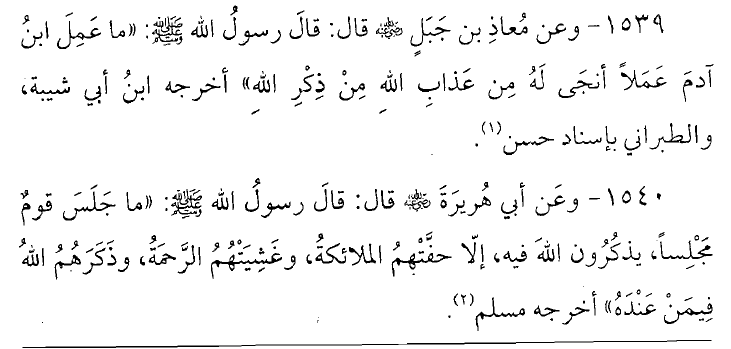 ١٥٣٩- وعن مُعاذِ بن جَبَلٍ ﵁ قال: قالَ رسولُ الله ﷺ: «ما عَمِلَ ابنُ
آدمَ عَمَلاً أنجَى لَهُ مِن عَذابِ اللهِ مِنْ ذِكْرِ اللهِ» أخرجه ابنُ أبي شيبة،
والطبراني بإسناد حسن(١).
١٥٤٠- وعَن أبي هُريرَةَ ﵁ قال: قالَ رسولُ الله ﷺ: «ما جَلَسَ قومٌ
مَجْلِساً، يذكُرُون اللهَ فيه، إلّا حفَّتْهمُ الملائكةُ، وغَشِيَتْهُمُ الرَّحمَةُ، وذَكَرَهُمُ اللهُ
فِيمَنْ عَنْدَهُ» أخرجه مسلم(٢).